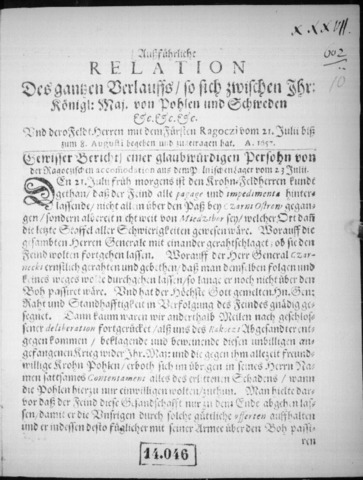 XXXVII.
602
10
Außführliche
RELATION
Des gantzen Verlauffs/ so sich zwischen Ihr:
Königl: Maj. von Pohlen und Schweden
&c. &c. &c.
Und dero Feld-Herren mit dem Fürsten Ragoczi vom 21. Julii biß
zum 8. Augusti begeben und zugetragen hat. A. 1657.
Gewisser Bericht/ einer glaubwürdigen Persohn von
der Ragocischen accomodation aus dem Polnischen Lager vom 23 Julii.
DEn 21. Julii früh morgens ist den Krohn-Feldherren kunde
gethan/ daß der Feind alle pagage und impedimenta hinter-
lassende/ nicht allein über den Paß bey Czarni Ostrow gegan-
gen/ sondern albereit nicht weit von Miedziboz sey/ welcher Ort dan
die letzte Staffel aller Schwierigkeiten gewesen wäre. Worauff die
gesambten Herren Generale mit einander gerahtschlaget/ ob sie den
Feind wolten fortgehen lassen. Worauff der Herr General Czar-
necki ernstlich gerahten und gebethen/ daß man demselben folgen und
keines weges wolle durchgehen lassen/ so lange er noch nicht über den
Boh passiret wäre. Und hat der Höchste Gott gemelten Hn. Gen:
Raht und Standhafftigkeit in Verfolgung des Feindes gnädig ge-
segnet. Dann kaum waren wir anderthalb Meilen nach geschlos-
sener deliberation fortgerücket/ alß uns des Rakoczi Abgesandter ent-
gegen kommen/ beklagende und beweinende diesen unbilligen an-
gefangenen Krieg wider Ihr. Maj: und die gegen ihm allezeit freund-
willige Krohn Pohlen/ erboth sich im übrigen in seines Herrn Na-
men sattsames Contentament alles des erlittenen Schadens/ wann
die Pohlen hierzu nur einwilligen wolten/ zu thun. Man hielte dar-
vor daß der Feind diese Gesandschafft nur zu dem Ende abgehen las-
sen/ damit er die Unsrigen durch solche gütliche offerten auffhalten
und er indessen desto füglicher mit seiner Armee über den Boh passi-
ren
14.046